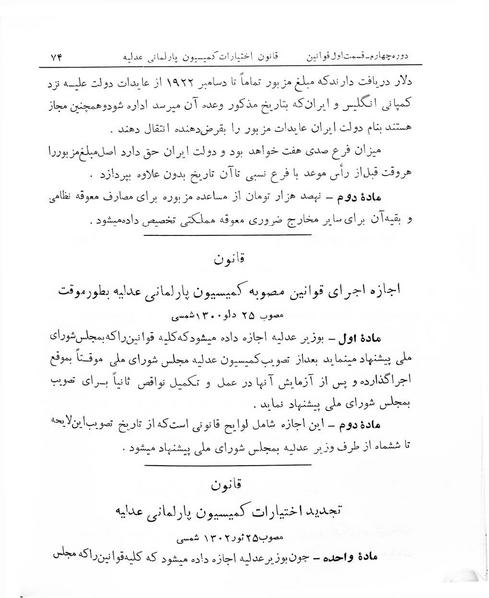 دوره چهارم - قسمت اول قوانین قانون اختیارات کمیسیون پارلمانی عدلیه ۷۴
دلار دریافت دارند که مبلغ مزبور تماماً تا دسامبر ۱۹۲۲ از عایدات دولت علیه نزد
کمپانی انگلیس و ایران که بتاریخ مذکور وعده آن میرسد اداره شود و همچنین مجاز
هستند بنام دولت ایران عایدات مزبور را بقرض دهنده انتقال دهند .
میزان فرع صدی هفت خواهد بود و دولت ایران حق دارد اصل مبلغ مزبور را
هر وقت قبل از رأس موعد با فرع نسبی تا آن تاریخ بدون علاوه بپردازد .
مادهٔ دوم - نهصد هزار تومان از مساعده مزبوره برای مصارف معوقه نظامی
و بقیه آن برای سایر مخارج ضروری معوقه مملکتی تخصیص داده میشود .
قانون
اجازه اجرای قوانین مصوبه کمیسیون پارلمانی عدلیه بطور موقت
مصوب ۲۵ دلو ۱۳۰۰ شمسی
مادهٔ اول - بوزیر عدلیه اجازه داده میشود که کلیه قوانین را که بمجلس شورای
ملی پیشنهاد مینماید بعد از تصویب کمیسیون عدلیه مجلس شورای ملی موقتاً بموقع
اجرا گذارده و پس از آزمایش آنها در عمل و تکمیل نواقص ثانیاً برای تصویب
بمجلس شورای ملی پیشنهاد نماید .
مادهٔ دوم - این اجازه شامل لوایح قانونی است که از تاریخ تصویب این لایحه
تا ششماه از طرف وزیر عدلیه بمجلس شورای ملی پیشنهاد میشود .
قانون
تجدید اختیارات کمیسیون پارلمانی عدلیه
مصوب ۲۵ ثور ۱۳۰۲ شمسی
مادهٔ واحده - چون بوزیر عدلیه اجازه داده میشود که کلیه قوانین را که مجلس